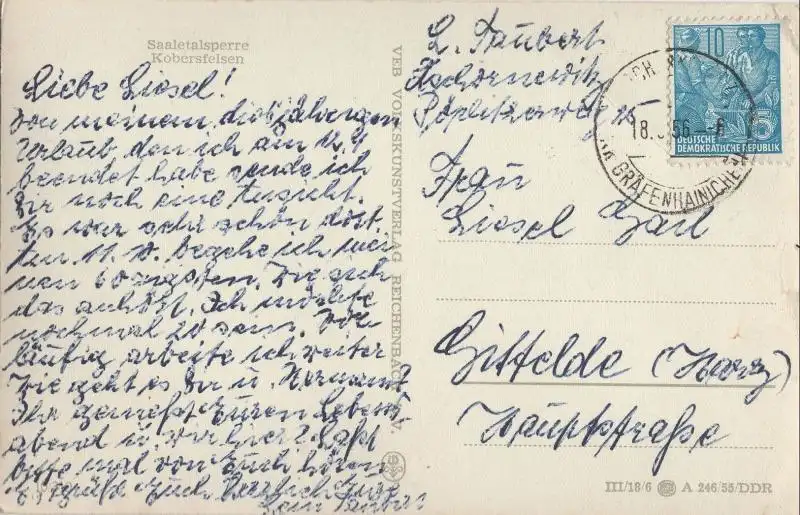 Saaletalsperre
Kobersfelsen
Liebe Liesel!
Von meinem diesjährigen
Urlaub den ich am 12.9
beendet habe sende ich
Dir noch eine Ansicht.
Es war sehr schön dort.
Am 11. 10. begehe ich mei-
nen 60zigsten. Wie sich
das anhört. Ich möchte
nochmal 20 sein. Vor-
läufig arbeite ich weiter
Wie geht es Dir u. Hermann?
Ihr genießt Euren Lebens-
abend u. wir hier? Laßt
bitte mal von Euch hören
Es grüßt Euch herzlich Eure
VEB VOLKSKUNSTVERLAG REICHENBACH i. V.
L. Taubert
Zschornewitz
Frau
Liesel
Gittelde (Harz)
Hauptstraße
10
5
DEUTSCHE
DEMOKRATISCHE REPUBLIK
18. 56 - 6
GRÄFENHAINICHEN
III/18/6 A 246/55/DDR